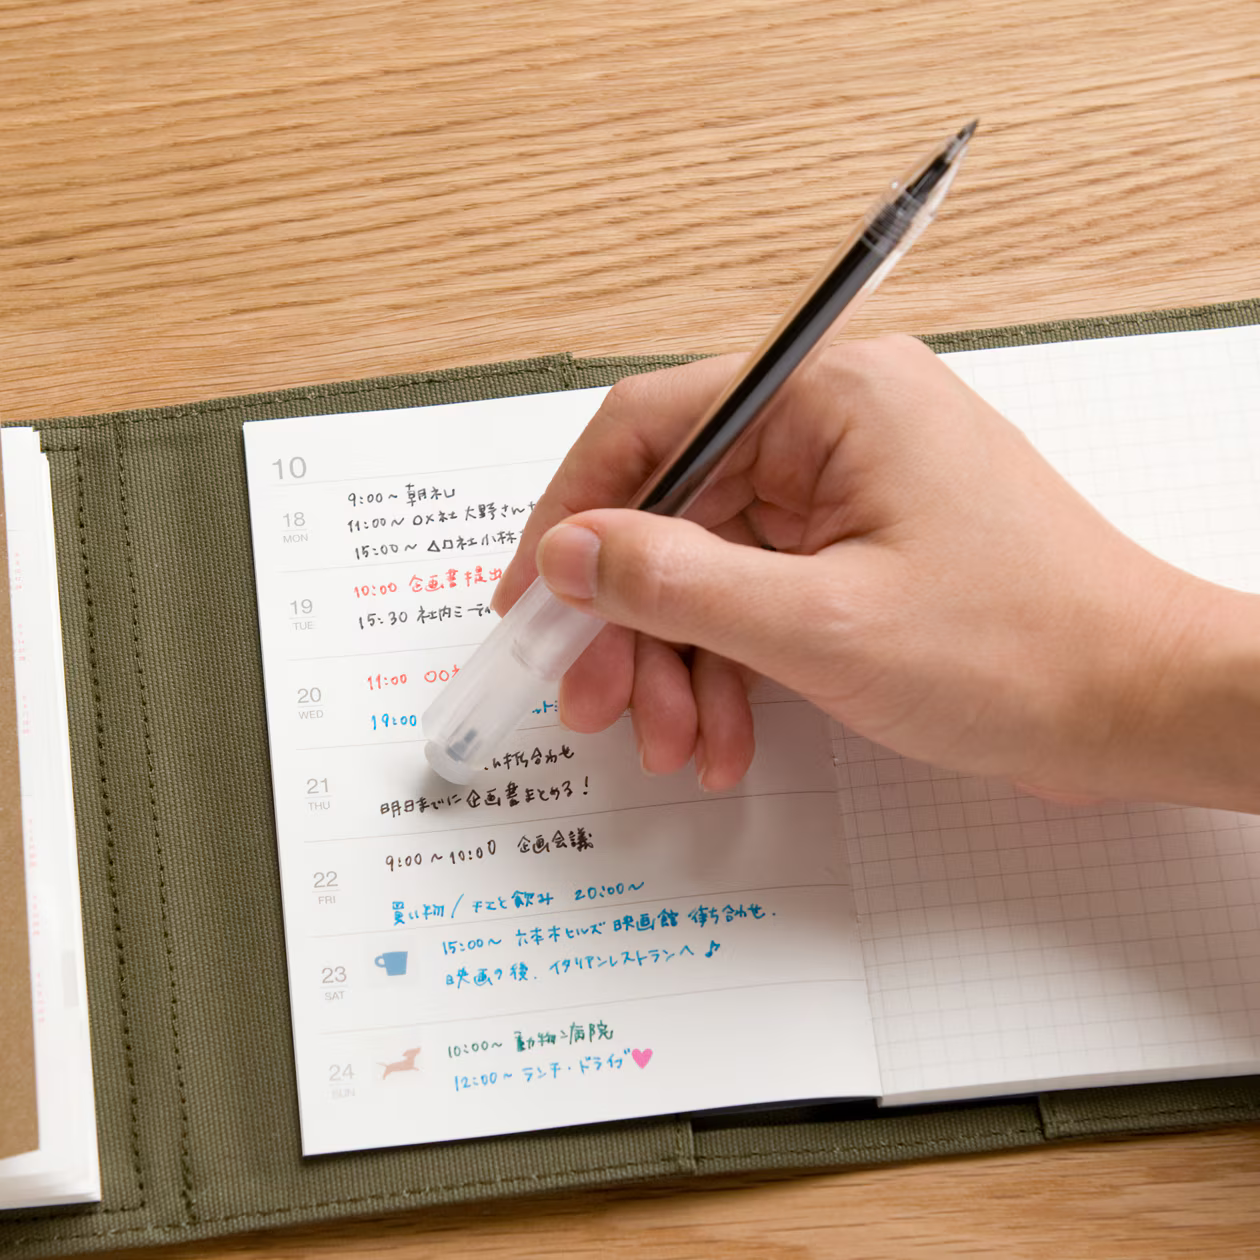 10
18
MON
9:00～ 朝礼
11:00～ ○×社 大野さん
15:00～ △□社小林
19
TUE
10:00 企画書提出
15:30 社内ミーティ
20
WED
11:00 ○○
19:00
21
THU
打ち合わせ
明日までに企画書まとめる!
22
FRI
9:00～10:00 企画会議
買い物/ と飲み 20:00～
23
SAT
15:00～ 六本木ヒルズ 映画館 待ち合わせ.
映画の後、イタリアンレストランへ♪
24
SUN
10:00～ 動物病院
12:00～ ランチ・ドライブ